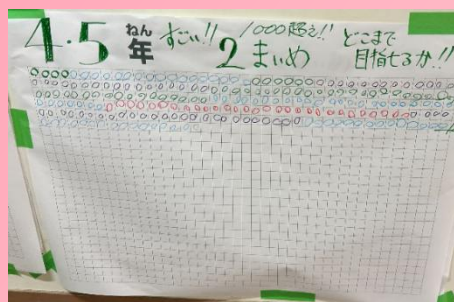 4・5年 ねん すごい!! 2まいめ 1000超え!! どこまで
目指せるか!!